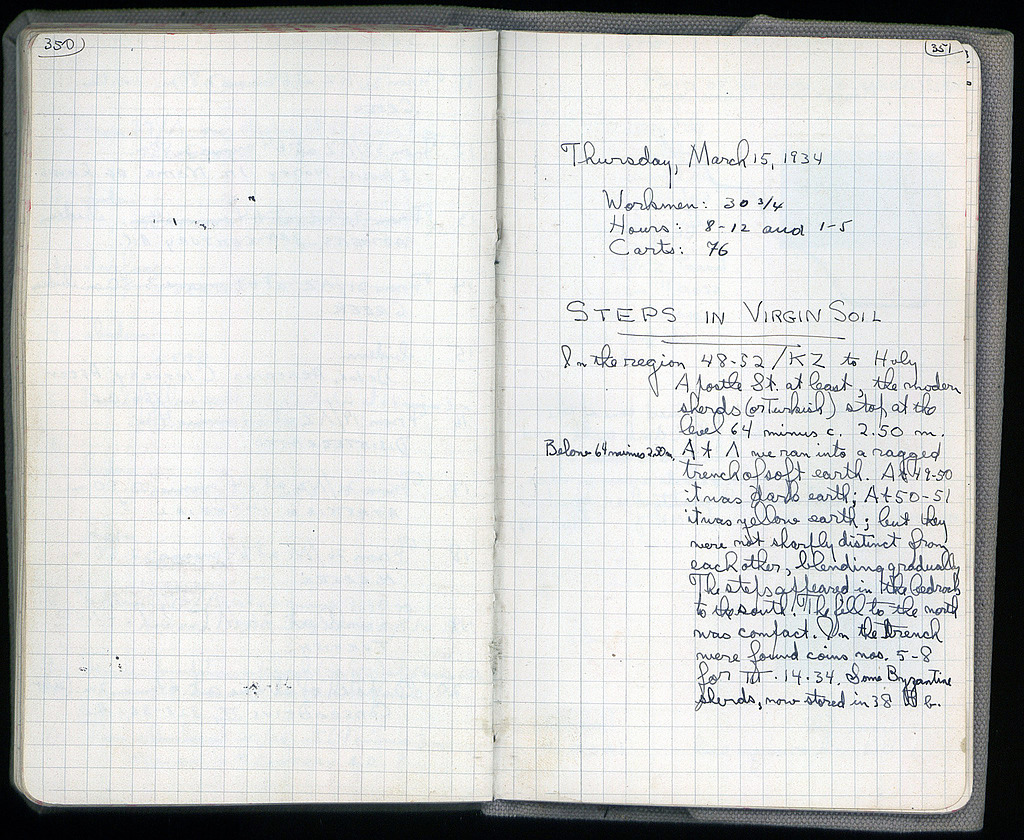 350
351
Thursday, March 15, 1934
Workmen: 30 3/4
Hours: 8-12 and 1-5
Carts: 76
STEPS IN VIRGIN SOIL
In the region 48-52/KZ to Holy
Apostle St. at least, the modern
sherds (or Turkish) stop at the
level 64 minus c. 2.50 m.
Below 64 minus 2.50 m. At Λ we ran into a ragged
trench of soft earth. At 49-50
it was dark earth; At 50-51
it was yellow earth; but they
were not sharply distinct from
each other, blending gradually
The steps appeared in the bedrock
to the south. The fill to the north
was compact. In the trench
were found coins nos. 5-8
for III.14.34. Some Byzantine
sherds, now stored in 38